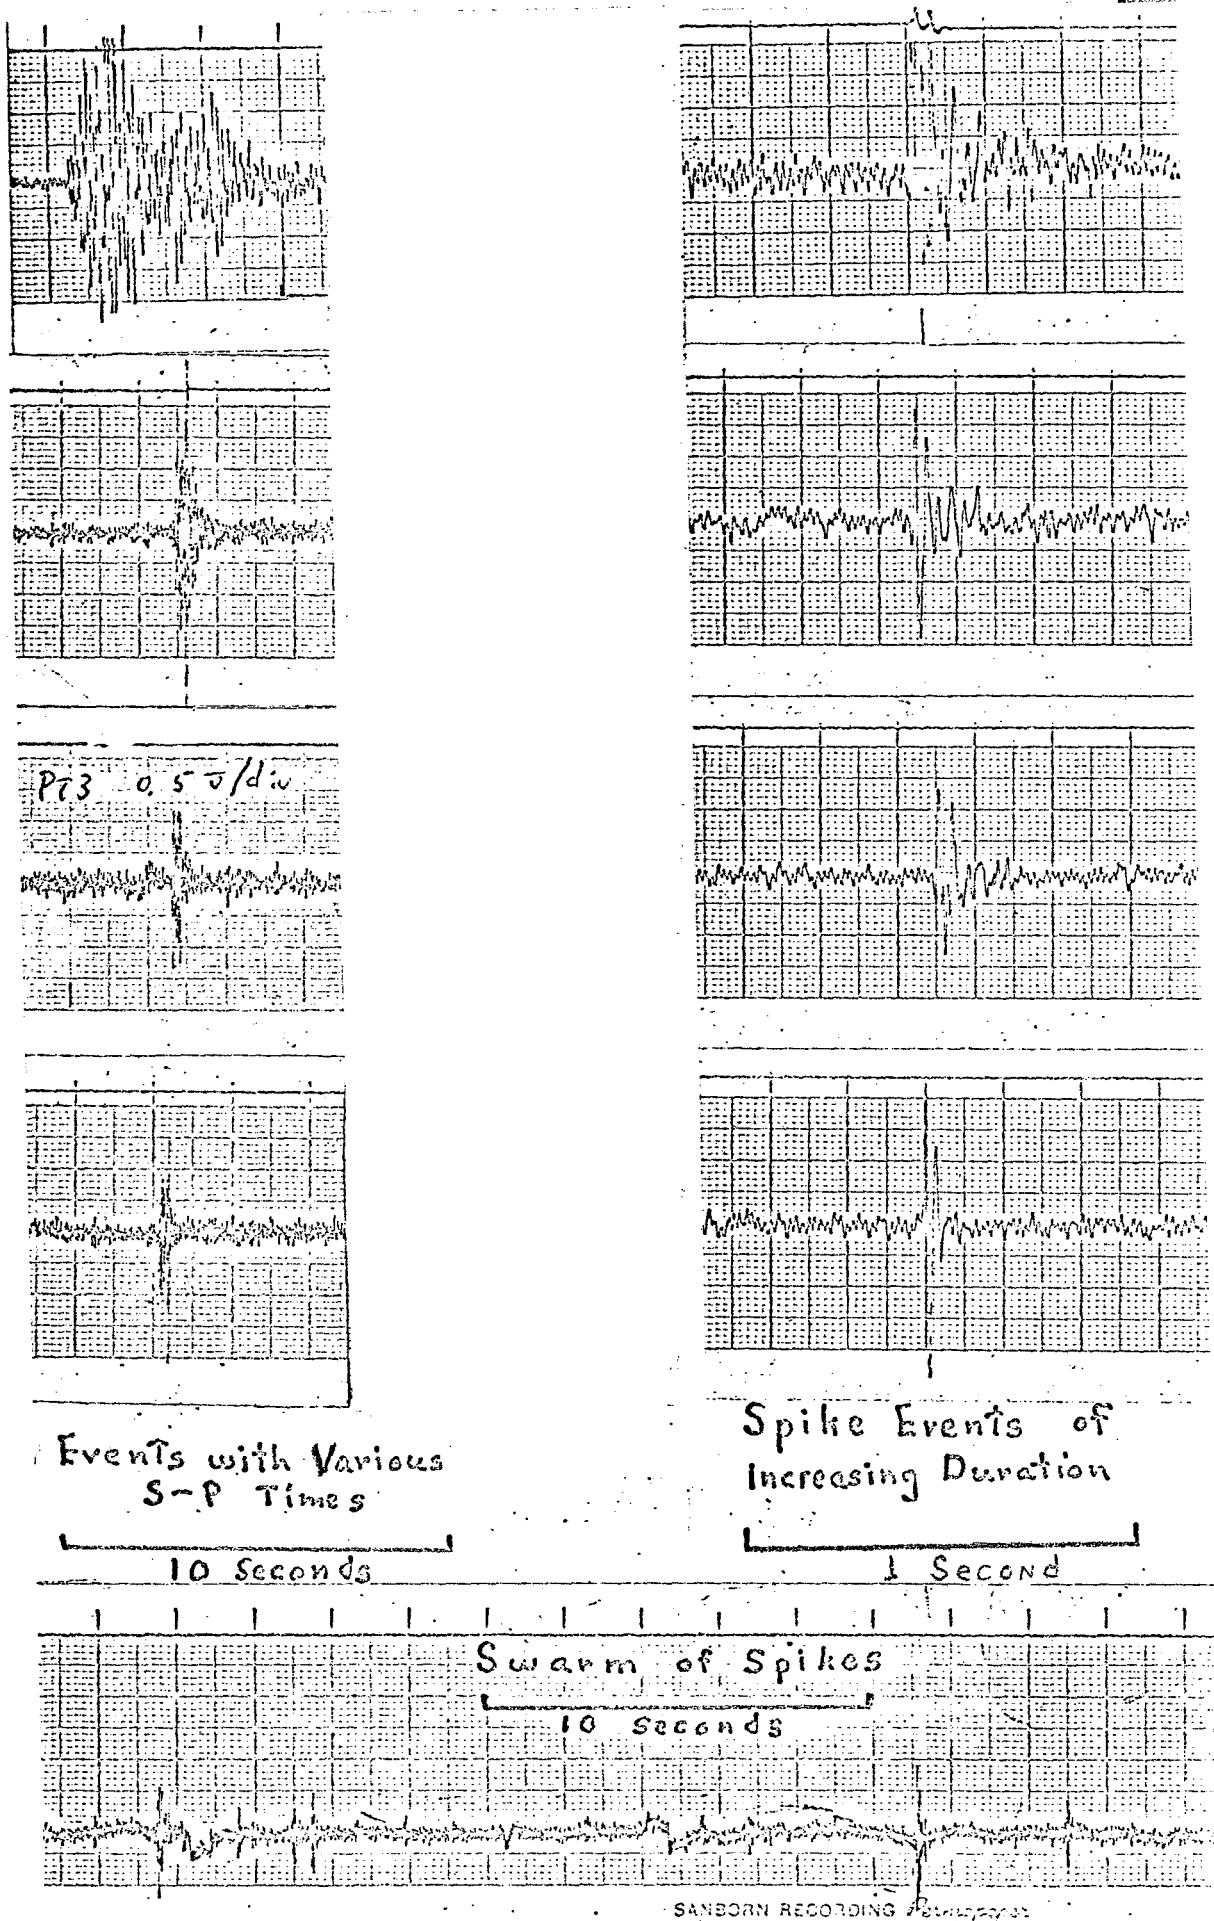 PT3 0.5 v/div
Events with Various
S-P Times
10 Seconds
Spike Events of
Increasing Duration
1 Second
Swarm of Spikes
10 Seconds
SANBORN RECORDING